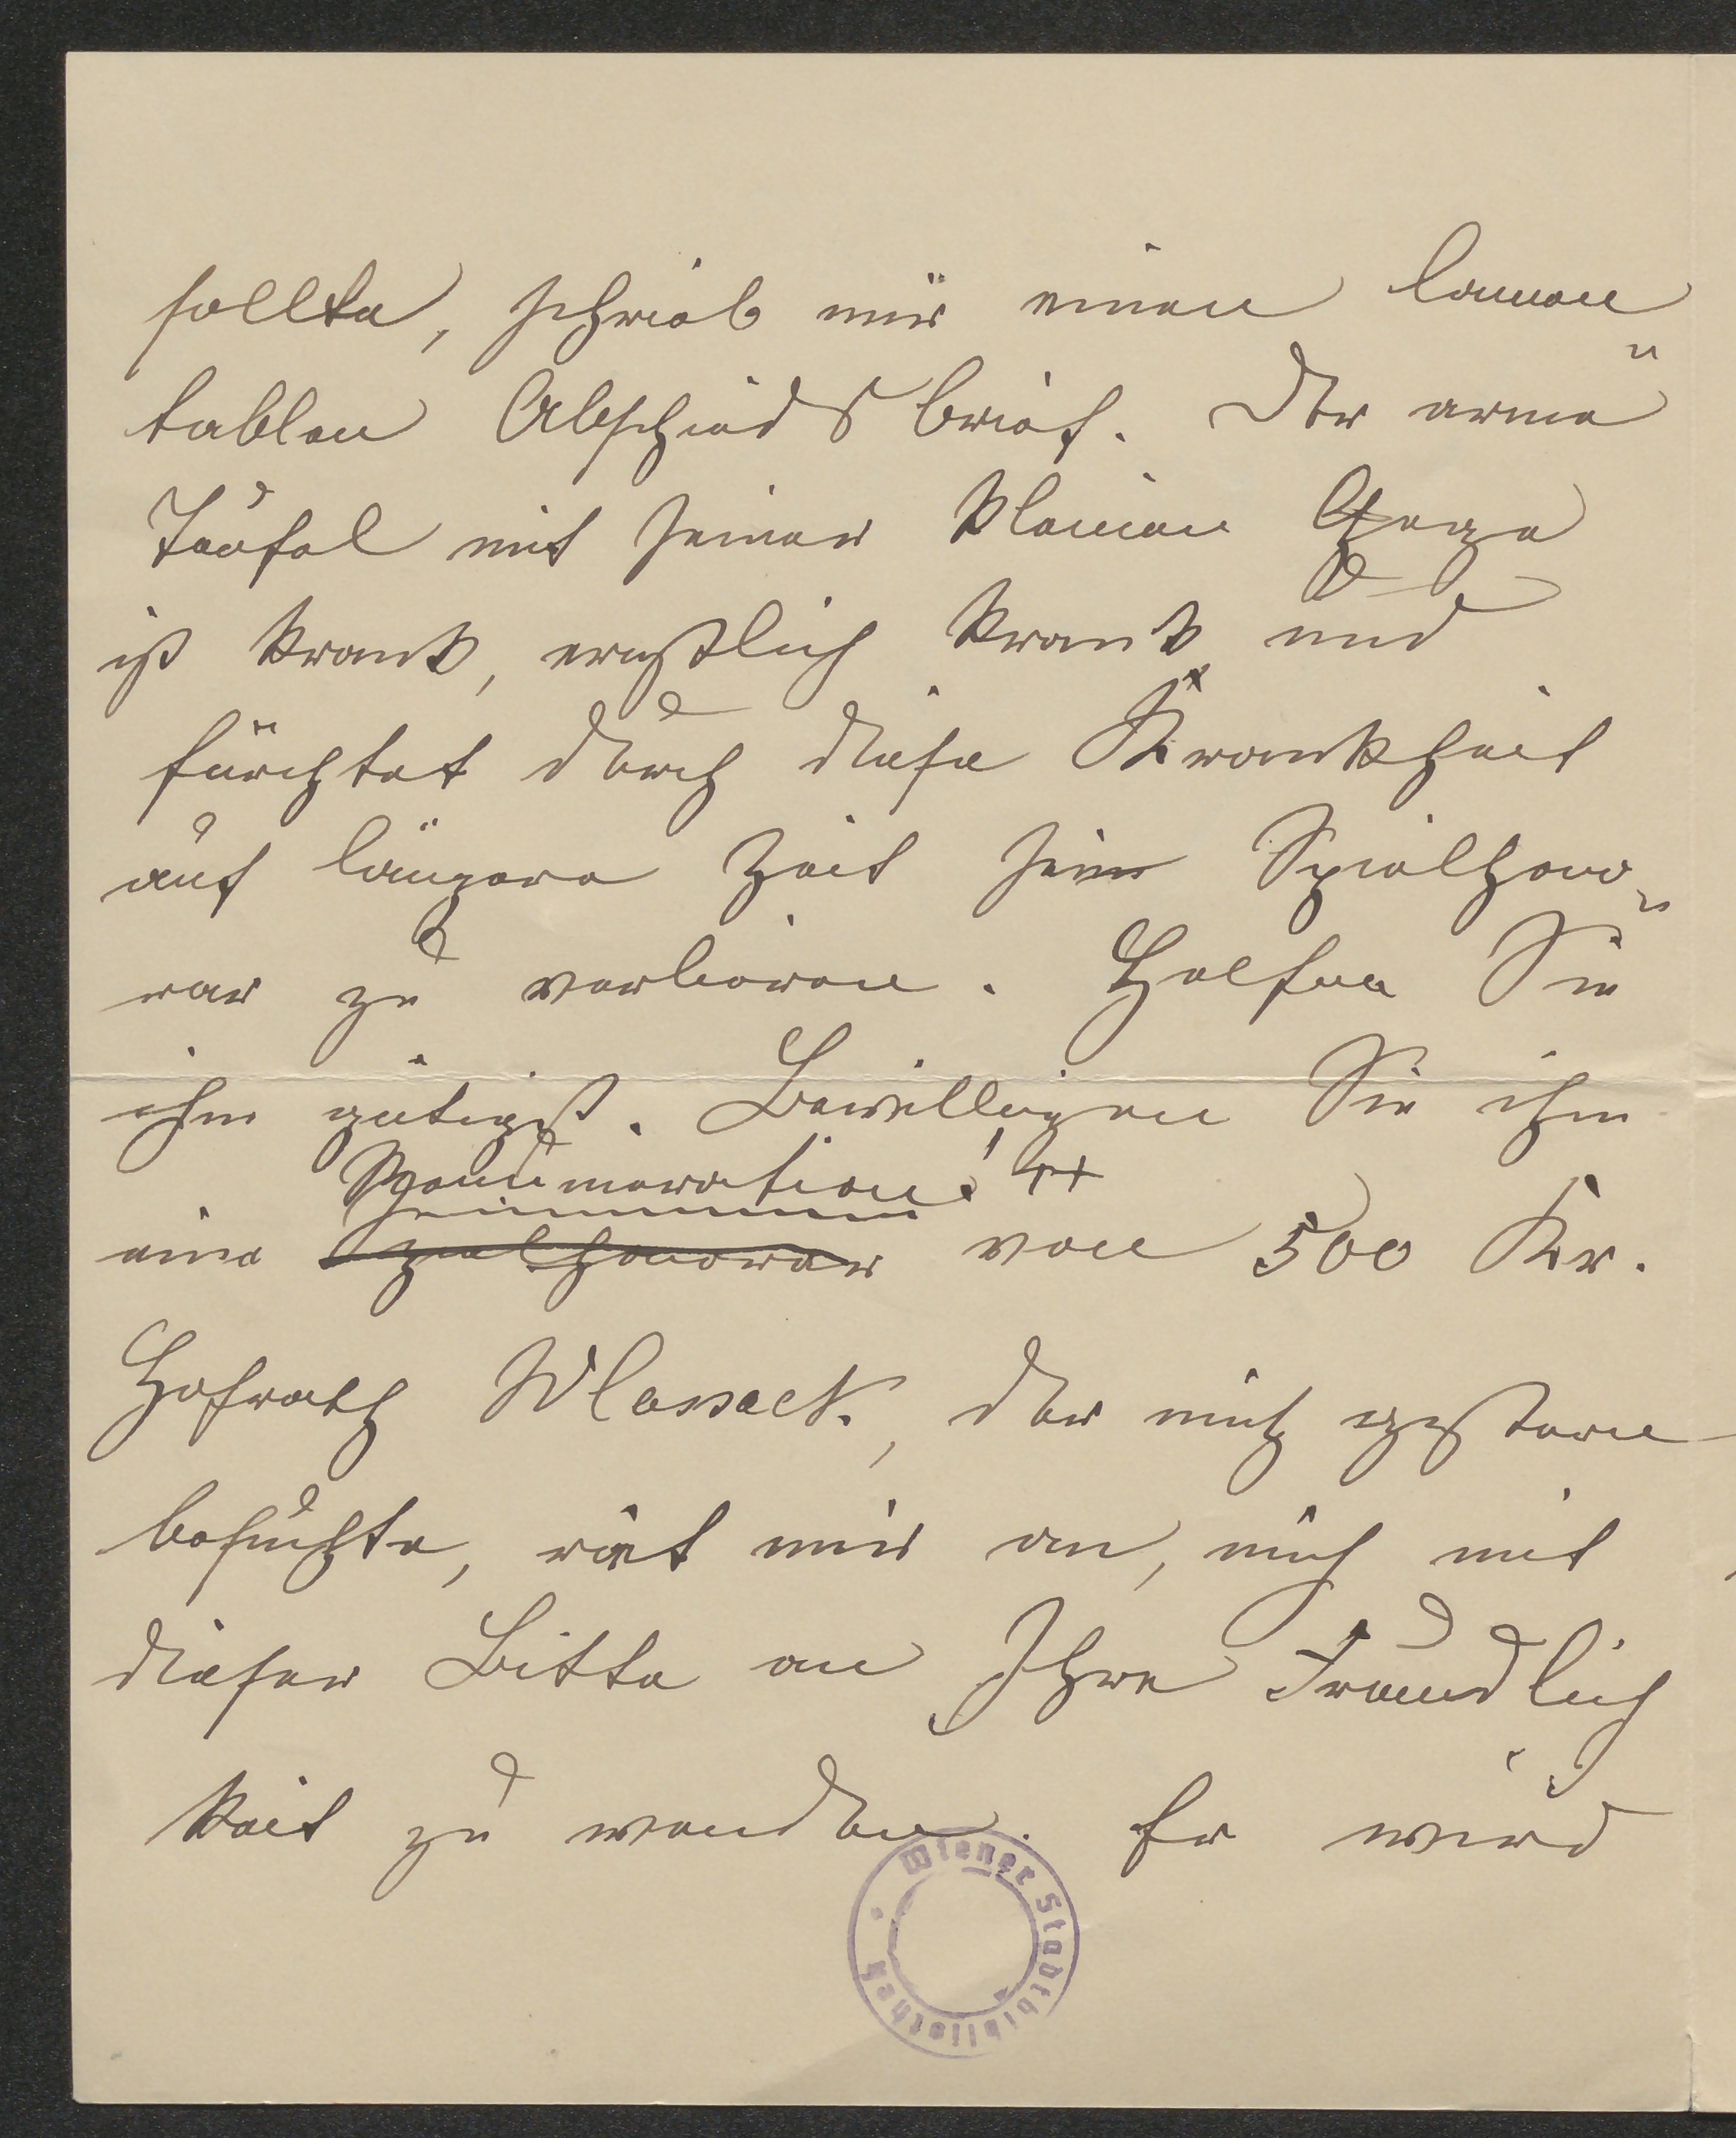 sollte, schrieb mir einen lamen„
tablen Abschiedsbrief. Der arme
Teufel mit seiner kleinen Gage
ist krank, ernstlich krank und
fürchtet durch diese Krankheit
auf längere Zeit sein Spielhono„
rar zu verlieren. Helfen Sie
ihm gütigst. Bewilligen Sie ihm
Remuneration! ++
eine Spielhonorar von 500 Kr.
Hofrath Wlassack, der mich gestern
besuchte, riet mir an, mich mit
dieser Bitte an Ihre Freundlich
keit zu wenden. Er wird
Wiener Stadtbibliothek